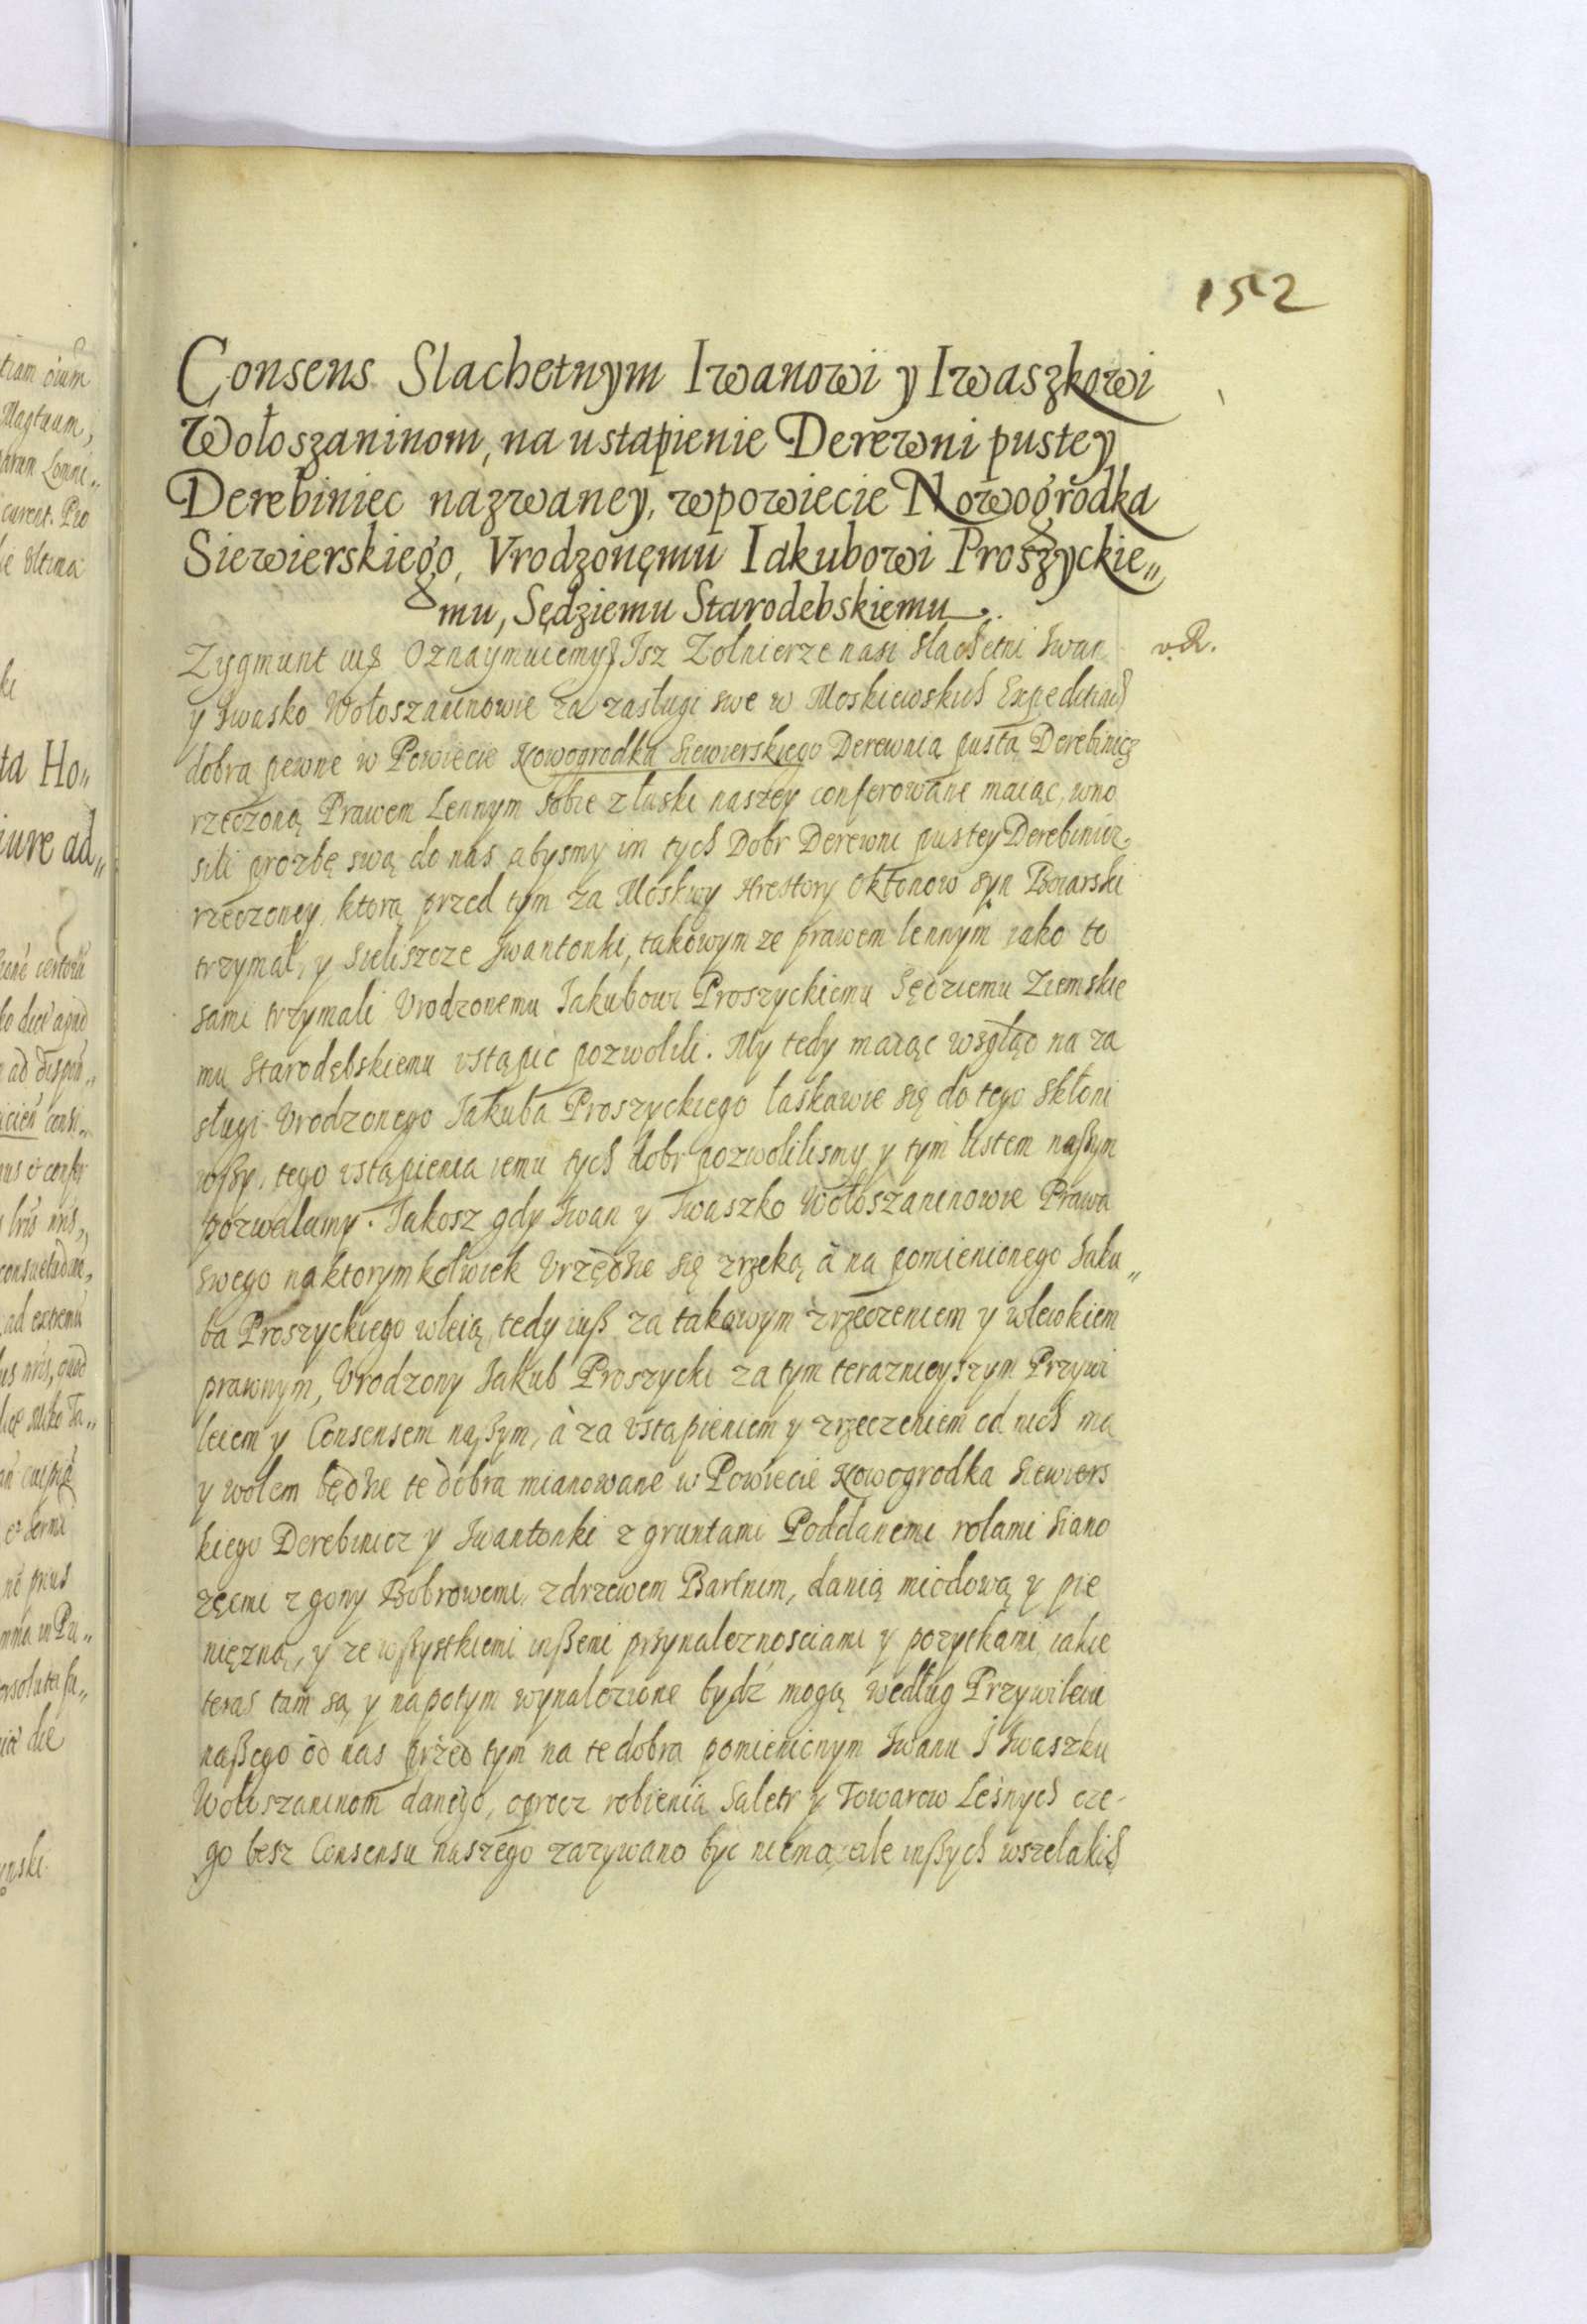 152
Consens Slachetnym Iwanowi y Iwaszkowi
Wołoszaninom, na ustąpienie Derewni pustey
Derebiniec nazwaney, w powiecie Nowogrodka
Siewierskiego, Vrodzonęmu Iakubowi Proszyckie„
mu, Sędziemu Starodebskiemu.
Zygmunt etc Oznaymuiemy Isz Zołnierze nasi slachetni Iwan
v. R.
y Iwasko Wołoszaninowie za zasługi swe w Moskiewskich Expeditiach
dobra pewne w Powiecie Nowogrodka Siewierskiego Derewnią pustą Derebinicz
rzeczoną Prawem Lennym sobie z łaski naszey conferowane maiąc, wno
sili prozbę swą do nas abysmy im tych Dobr Derewni pustey Derebinicz
rzeczoney, ktorą przed tym za Moskwy Hrestory Okłonow syn Boiarski
trzymał, y Sieliszcze Iwantonki, takowym ze prawem lennym iako to
sami trzymali Vrodzonemu Iakubowi Proszyckiemu Sędziemu Ziemskie
mu Starodębskiemu vstąpic pozwolili. My tedy maiąc wzgląd na za
sługi Vrodzonego Iakuba Proszyckiego łaskawie się do tego skłoni
wszy, tego vstąpienia iemu tych dobr pozwolilismy y tym listem naszym
pozwalamy. Iakosz gdy Iwan y Iwaszko Wołoszaninowie Prawa
swego na ktorymkolwiek Vrzędzie się zrzeką à na pomienionego Iaku„
ba Proszyckiego wleią, tedy iusz za takowym zrzeczeniem y wlewkiem
prawnym, Vrodzony Iakub Proszycki za tym teraznieyszym Przywi
leiem y Consensem naszym, à za vstąpieniem y zrzeczeniem od nich ma
y wolem będzie te dobra mianowane w Powiecie Nowogrodka Siewiers
kiego Derebinicz y Iwantonki z gruntami Poddanemi rolami siano
zęcmi z gony Bobrowemi, z drzewem Bartnim, danią miodową y pie
nięzną, y ze wszystkiemi inszemi przynaleznosciami y pozytkami, iakie
teras tam są y napotym wynalezione bydź mogą według Przywileiu
naszego od nas przed tym na te dobra pomienionym Iwanu I Iwaszku
Wołoszaninom danego, oprocz robienia Saletr y Towarow Leśnych cze-
go besz Consensu naszego zazywano byc niema, ale inszych wszelakich